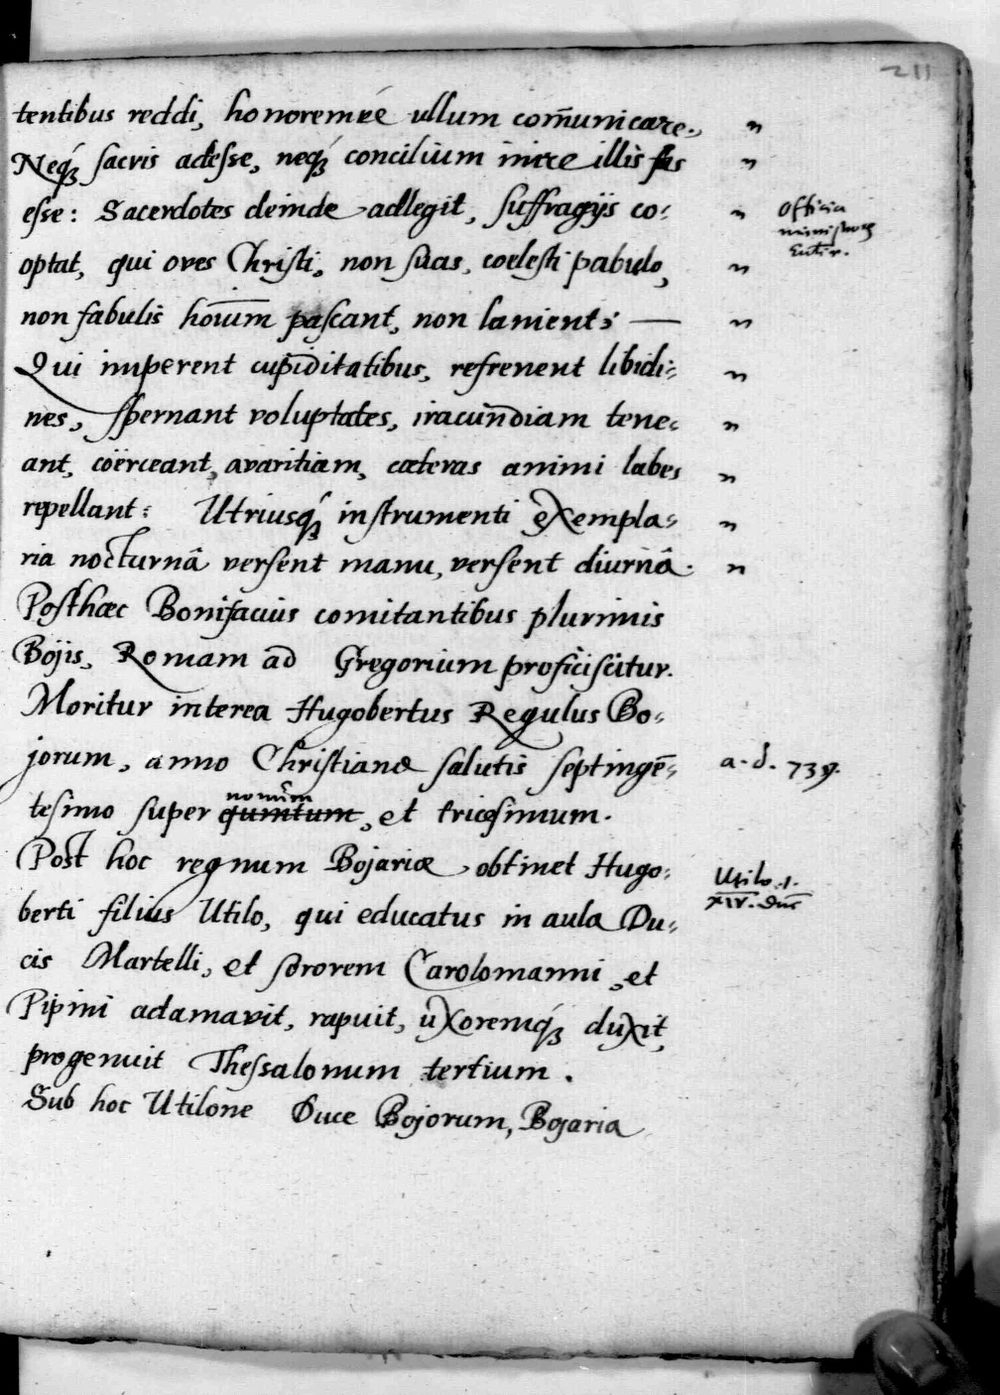 211
tentibus reddi, honoremvé ullum com̄unicare.
Neq́ꝫ sacris adesse, neq́ꝫ concilium inire illis fas
esse: Sacerdotes deinde adlegit, suffragijs co-
optat, qui oves Christi, non suas, coelesti pabulo,
non fabulis hoīum pascant, non lanient: —
Qui imperent cupiditatibus, refrenent libidi-
nes, spernant voluptates, iracundiam tene-
ant, coërceant, avaritiam, cæteras animi labes
repellant: Utriusq́ꝫ instrumenti exempla-
ria nocturnâ versent manu, versent diurnâ.
Posthæc Bonifacius comitantibus plurimis
Bojis, Romam ad Gregorium proficiscitur.
Moritur interea Hugobertus Regulus Bo-
jorum, anno Christianæ salutis septingē-
nonum
tesimo super quintum, et tricesimum.
Post hoc regnum Bojariæ obtinet Hugo-
berti filius Utilo, qui educatus in aula Du-
cis Martelli, et sororem Carolomanni, et
Pipini adamavit, rapuit, uxoremq́ꝫ duxit,
progenuit Thessalonum tertium.
Sub hoc Utilone Duce Bojorum, Bojaria
Officia
ministrorꝫ
a. d. 739.
Utilo. 1.
XIV. Dux